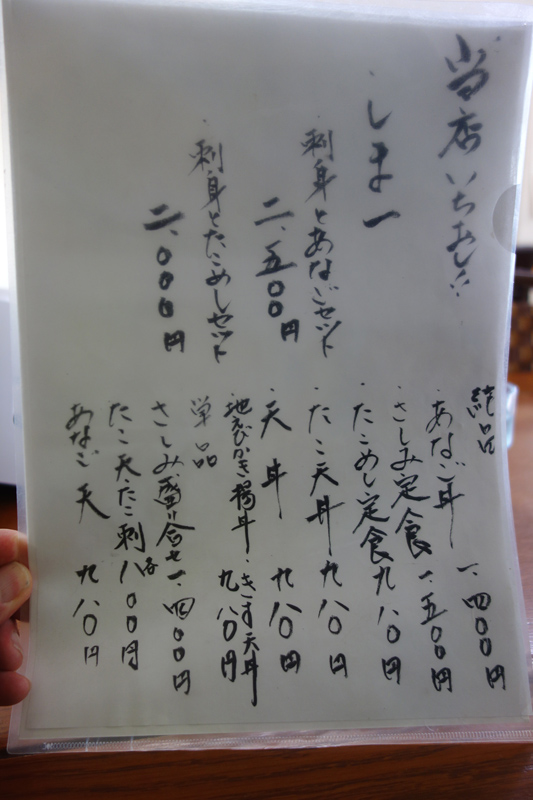 当店いちおし!!
・しま一
・刺身とあなごセット
二、五〇〇円
・刺身とたこめしセット
二、〇〇〇円
・あなご丼 一、四〇〇円
・さしみ定食 一、五〇〇円
・たこめし定食 九八〇円
・たこ天丼 九八〇円
・天丼 九八〇円
・きす天丼 九八〇円
単品
さしみ盛り合せ 一、四〇〇円
たこ天・たこ刺 各八〇〇円
あなご天 九八〇円